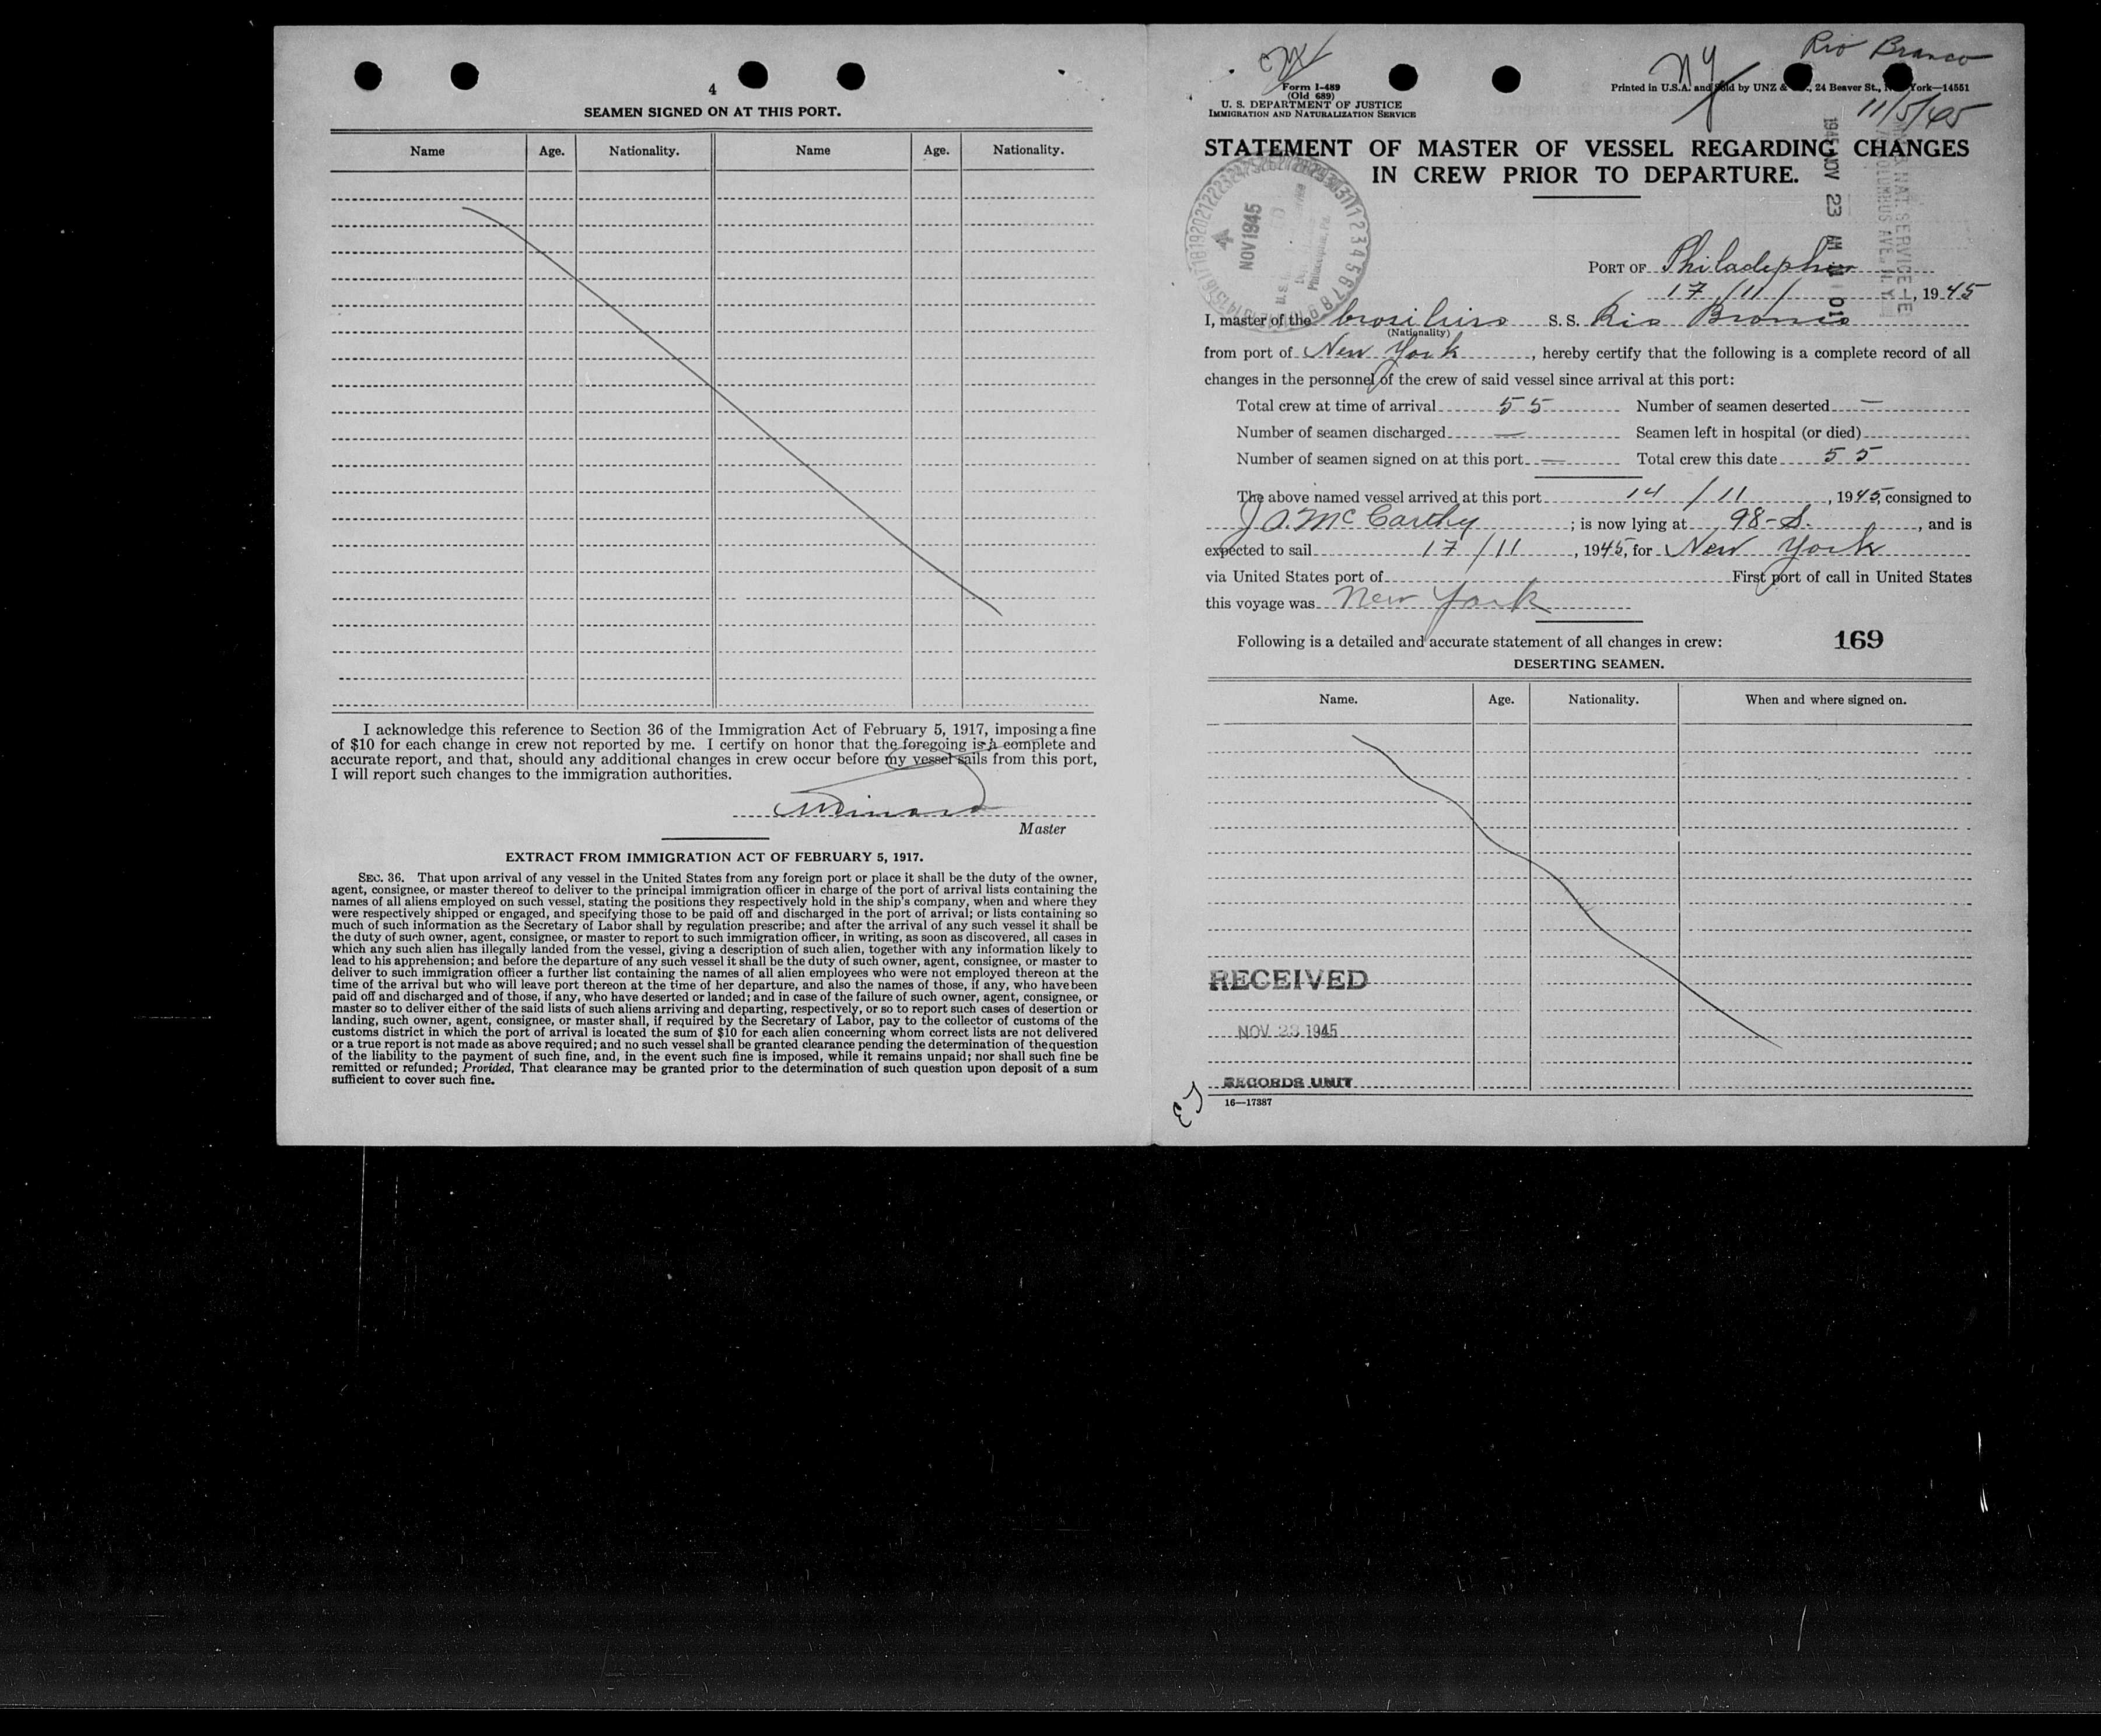 4
SEAMEN SIGNED ON AT THIS PORT.
Name Age. Nationality. Name Age. Nationality.
I acknowledge this reference to Section 36 of the Immigration Act of February 5, 1917, imposing a fine
of $10 for each change in crew not reported by me. I certify on honor that the foregoing is a complete and
accurate report, and that, should any additional changes in crew occur before my vessel sails from this port,
I will report such changes to the immigration authorities.
Master
EXTRACT FROM IMMIGRATION ACT OF FEBRUARY 5, 1917.
SEC. 36. That upon arrival of any vessel in the United States from any foreign port or place it shall be the duty of the owner,
agent, consignee, or master thereof to deliver to the principal immigration officer in charge of the port of arrival lists containing the
names of all aliens employed on such vessel, stating the positions they respectively hold in the ship's company, when and where they
were respectively shipped or engaged, and specifying those to be paid off and discharged in the port of arrival; or lists containing so
much of such information as the Secretary of Labor shall by regulation prescribe; and after the arrival of any such vessel it shall be
the duty of such owner, agent, consignee, or master to report to such immigration officer, in writing, as soon as discovered, all cases in
which any such alien has illegally landed from the vessel, giving a description of such alien, together with any information likely to
lead to his apprehension; and before the departure of any such vessel it shall be the duty of such owner, agent, consignee, or master to
deliver to such immigration officer a further list containing the names of all alien employees who were not employed thereon at the
time of the arrival but who will leave port thereon at the time of her departure, and also the names of those, if any, who have been
paid off and discharged and of those, if any, who have deserted or landed; and in case of the failure of such owner, agent, consignee, or
master so to deliver either of the said lists of such aliens arriving and departing, respectively, or so to report such cases of desertion or
landing, such owner, agent, consignee, or master shall, if required by the Secretary of Labor, pay to the collector of customs of the
customs district in which the port of arrival is located the sum of $10 for each alien concerning whom correct lists are not delivered
or a true report is not made as above required; and no such vessel shall be granted clearance pending the determination of the question
of the liability to the payment of such fine, and, in the event such fine is imposed, while it remains unpaid; nor shall such fine be
remitted or refunded; Provided, That clearance may be granted prior to the determination of such question upon deposit of a sum
sufficient to cover such fine.
Rio Branco
NY
Form I-489
(Old 689)
U. S. DEPARTMENT OF JUSTICE
IMMIGRATION AND NATURALIZATION SERVICE
Printed in U.S.A. and Sold by UNZ & , 24 Beaver St., York—14551
11/5/45
STATEMENT OF MASTER OF VESSEL REGARDING CHANGES
IN CREW PRIOR TO DEPARTURE.
NOV 1945
Philadelphia, Pa.
1945 NOV 23 AM 01
NAT. SERVICE
COLUMBUS AVE. N. Y.
PORT OF Philadephia
17/11/, 1945
I, master of the brasileiro S. S. Rio Branco
(Nationality)
from port of New York, hereby certify that the following is a complete record of all
changes in the personnel of the crew of said vessel since arrival at this port:
Total crew at time of arrival 55 Number of seamen deserted —
Number of seamen discharged — Seamen left in hospital (or died)
Number of seamen signed on at this port — Total crew this date 55
The above named vessel arrived at this port 14/11, 1945, consigned to
J A. McCarthy; is now lying at 98-S., and is
expected to sail 17/11, 1945, for New York
via United States port of First port of call in United States
this voyage was New York
Following is a detailed and accurate statement of all changes in crew: 169
DESERTING SEAMEN.
Name. Age. Nationality. When and where signed on.
RECEIVED
NOV 23 1945
RECORDS UNIT
16—17387